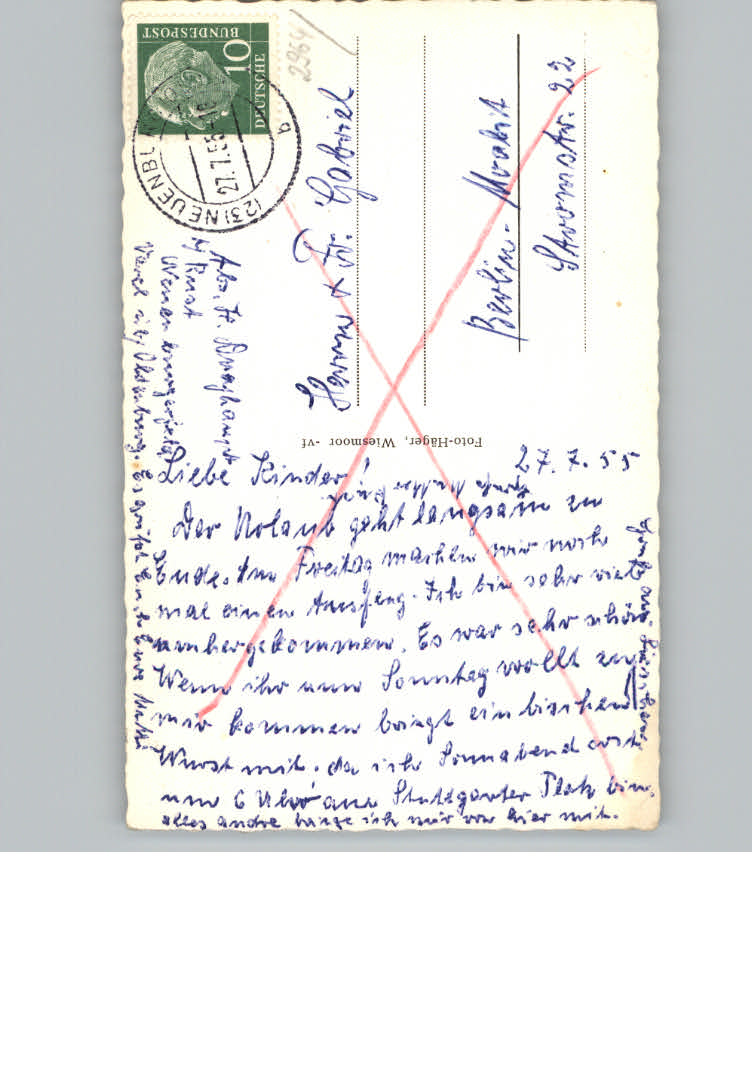 DEUTSCHE
BUNDESPOST
10
(23) NEUENB
27.7.55
b
2964
Herrn u Fr. Gabriel
Berlin-Moabit
Stromstr. 22
Foto-Häger, Wiesmoor -vf
Abs. Fr.
27.7.55
Liebe Kinder!
Der Urlaub geht langsam zu
Ende. Am Freitag machen wir noch
mal einen Ausflug. Ich bin sehr viel
umhergekommen. Es war sehr schön
Wenn ihr nun Sonntag wollt zu
mir kommen bringt ein bischen
Wurst mit. da ich Sonnabend erst
um 6 Uhr am Stuttgarter Platz bin.
alles andre bringe ich mir von hier mit.
Es grüßt Euch Eure Mutti